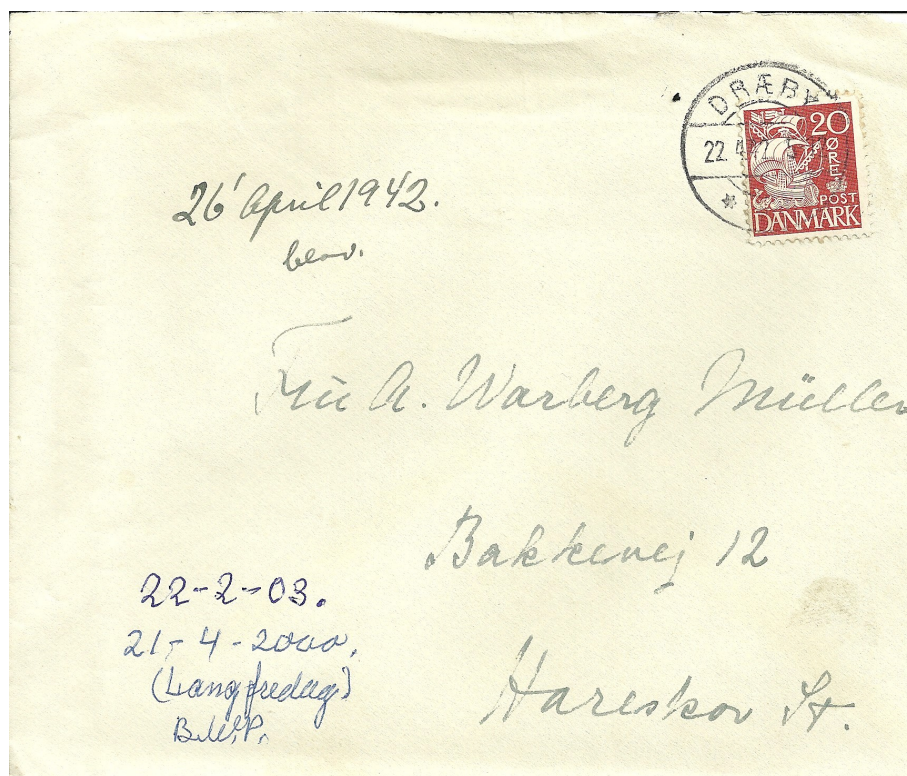 DRÆBY
22.4.42
20
ØRE
POST
DANMARK
26' April 1942.
besv.
Fru A. Warberg Müller
Bakkevej 12
Hareskov St.
22-2-03.
21-4-2000.
(Langfredag)
B.W.P.